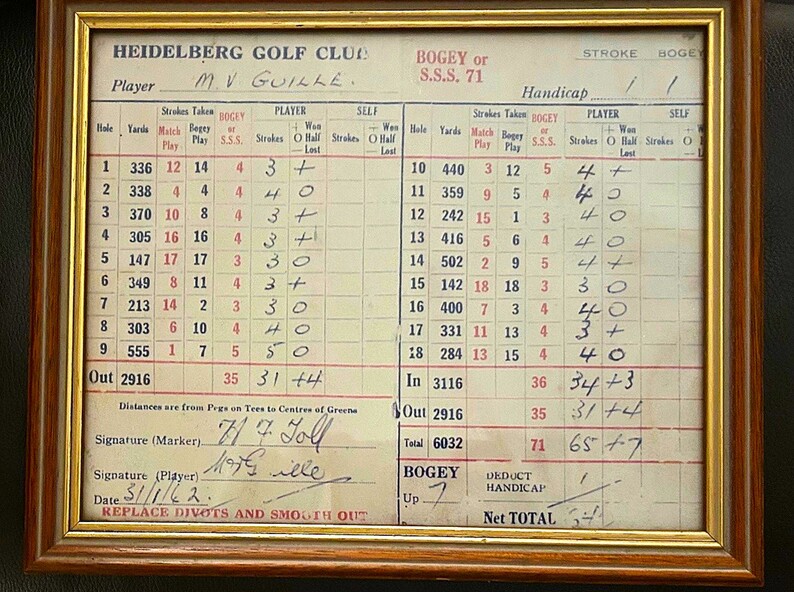 HEIDELBERG GOLF CLUB
BOGEY or S.S.S. 71
STROKE BOGEY
Player M. V GUILLE.
Handicap 1 1
Hole Yards Strokes Taken Match Play Bogey Play BOGEY or S.S.S. PLAYER Strokes + Won O Half — Lost SELF Strokes + Won O Half — Lost
1 336 12 14 4 3 +
2 338 4 4 4 4 0
3 370 10 8 4 3 +
4 305 16 16 4 3 +
5 147 17 17 3 3 0
6 349 8 11 4 3 +
7 213 14 2 3 3 0
8 303 6 10 4 4 0
9 555 1 7 5 5 0
Out 2916 35 31 +4
Distances are from Pegs on Tees to Centres of Greens
Signature (Marker)
Signature (Player)
Date 31/1/62.
REPLACE DIVOTS AND SMOOTH OUT
Hole Yards Strokes Taken Match Play Bogey Play BOGEY or S.S.S. PLAYER Strokes + Won O Half — Lost SELF Strokes
10 440 3 12 5 4 +
11 359 9 5 4 4 0
12 242 15 1 3 4 0
13 416 5 6 4 4 0
14 502 2 9 5 4 +
15 142 18 18 3 3 0
16 400 7 3 4 4 0
17 331 11 13 4 3 +
18 284 13 15 4 4 0
In 3116 36 34 +3
Out 2916 35 31 +4
Total 6032 71 65 +7
BOGEY
Up 7
DEDUCT HANDICAP 1
Net TOTAL